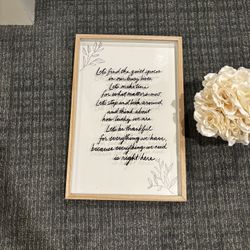 Let's find the quiet spaces
in our busy lives.
Let's make time
for what matters most.
Let's stop and look around,
and think about
how lucky we are.
Let's be thankful
for everything we have,
because everything we need
is right here.